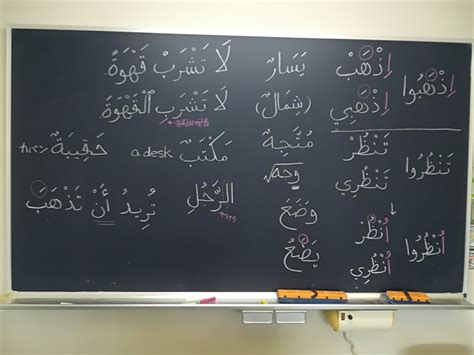 اِذْهَبُوا
اِذْهَبْ
اِذْهَبِي
تَنْظُرُوا
تَنْظُرْ
تَنْظُرِي
اُنْظُرُوا
اُنْظُرْ
اُنْظُرِي
يَسَارٌ
(شِمَالٌ)
مُتَّجِهٌ
وجه
وَضَعَ
يَضَعُ
لَا تَشْرَبْ قَهْوَةً.
لَا تَشْرَبِ الْقَهْوَةَ
مَكْتَبٌ a desk
حَقِيبَةٌ
الرَّجُلِ
تُرِيدُ أَنْ تَذْهَبَ